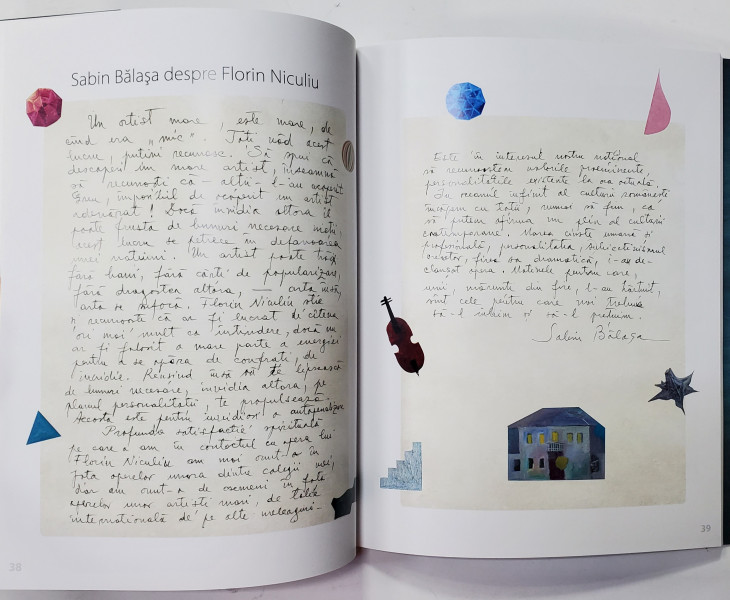 Sabin Bălaşa despre Florin Niculiu
Un artist mare, este mare, de
când era „mic". Toţi văd acest
lucru, puţini recunosc. Să spui că
descoperi un mare artist, înseamnă
să recunoşti că altul l-au acoperit.
Greu, imposibil de acoperit un artist
adevărat! Dacă invidia altora îl
poate frustra de bunuri necesare
acest lucru se petrece în defavoarea
unei naţiuni. Un artist poate trăi
fără bani, fără cărţi de popularizare,
fără dragostea altora, — arta însă,
arta se sufocă. Florin Niculiu ştie
a recunoaşte că ar fi lucrat de câteva
ori mai mult ca întindere, dacă nu
ar fi folosit o mare parte a energiei
pentru a se apăra de confraţi, de
invidie. Reuşind însă să te lipsească
de bunuri necesare, invidia altora, pe
planul personalităţii, te propulsează.
Aceasta este pentru invidioşi o autopenalizare
Profunda satisfacţie spirituală
pe care o am în contactul cu opera lui
Florin Niculiu am mai avut-o în
faţa operelor unora dintre colegii mei,
dar am avut-o de asemeni în faţa
operelor unor artişti mari, de talie
internaţională de pe alte meleaguri.
38
Este în interesul nostru naţional
să recunoaştem valorile proeminente,
personalităţile existente la ora actuală.
În recursul infinit al culturii româneşti
mergem cu toţii, numai să fim, ca
să putem afirma un plin al culturii
contemporane. Marea cinste umană şi
profesională, personalitatea,
creator, firea sa dramatică, i-au de-
clanşat opera. Motivele pentru care,
unii, mărunţi din fire, l-au hărţuit,
sînt cele pentru care noi trebuie
să-l iubim şi să-l preţuim.
Sabin Bălaşa
39